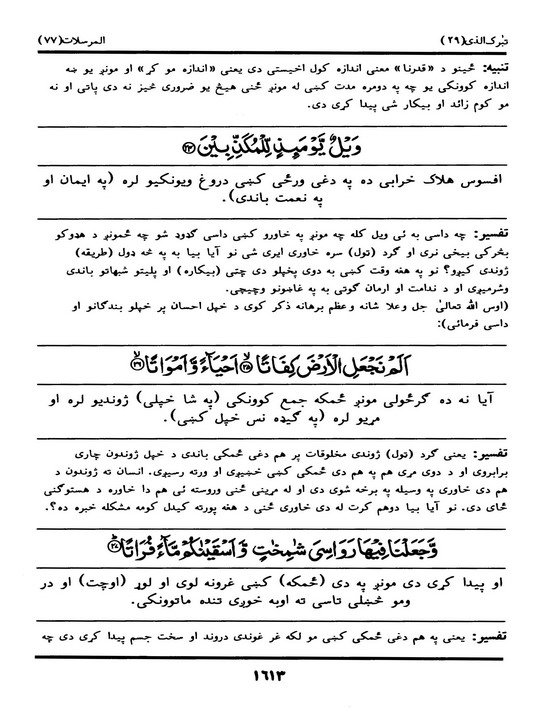 تبرک الذی (۲۹) المرسلات (۷۷)
تنبیه: ځینو د «قدرنا» معنی اندازه کول اخیستی دی یعنی «اندازه مو کړ» او مونږ یو ښه
اندازه کوونکی یو چه په دومره مدت کښی له مونږ ځنی هیڅ یو ضروری څیز نه دی پاتی او نه
مو کوم زائد او بیکار شی پیدا کړی دی.
وَيْلٌ يَّوْمَئِذٍ لِّلْمُكَذِّبِيْنَ ﴿۲۴﴾
افسوس هلاک خرابی ده په دغی ورځی کښی دروغ ویونکیو لره (په ایمان او
په نعمت باندی).
تفسیر: چه داسی به ئی ویل کله چه مونږ په خاورو کښی داسی ګډوډ شو چه ځمونږ د هډوکو
بڅرکی بیخی نری او ګرد (ټول) سره خاوری ایری شی نو آیا بیا به په څه ډول (طریقه)
ژوندی کیږو؟ نو په هغه وقت کښی به دوی پخپلو دی چتی (بیکاره) او پلیتو شبهاتو باندی
وشرمیږی او د ندامت او ارمان ګوتی به په غاښونو وچیچی.
(اوس الله تعالیٰ جل وعلا شانه وعظم برهانه ذکر کوی د خپل احسان پر خپلو بندګانو او
داسی فرمائی):
اَلَمْ نَجْعَلِ الْاَرْضَ كِفَاتًا ﴿۲۵﴾ اَحْيَآءً وَّاَمْوَاتًا ﴿۲۶﴾
آیا نه ده ګرځولی مونږ ځمکه جمع کوونکی (په شا خپلی) ژوندیو لره او
مړیو لره (په ګیډه نس خپل کښی).
تفسیر: یعنی ګرد (ټول) ژوندی مخلوقات پر هم دغی ځمکی باندی د خپل ژوندون چاری
برابروی او د دوی مړی هم په هم دی ځمکی کښی ښخیږی او ورته رسیږی. انسان ته ژوندون د
هم دی خاوری په وسیله په برخه شوی دی او له مړینی ځنی وروسته ئی هم دا خاوره د هستوګنی
ځای دی. نو آیا بیا دوهم کرت له دی خاوری ځنی د هغه پورته کیدل کومه مشکله خبره ده؟.
وَّجَعَلْنَا فِيْهَا رَوَاسِیَ شٰمِخٰتٍ وَّاَسْقَيْنٰكُمْ مَّآءً فُرَاتًا ﴿۲۷﴾
او پیدا کړی دی مونږ په دی (ځمکه) کښی غرونه لوی او لوړ (اوچت) او در
ومو څښلی تاسی ته اوبه خوږی تنده ماتوونکی.
تفسیر: یعنی په هم دغی ځمکی کښی مو لکه غر غوندی دروند او سخت جسم پیدا کړی دی چه
۱۶۱۳